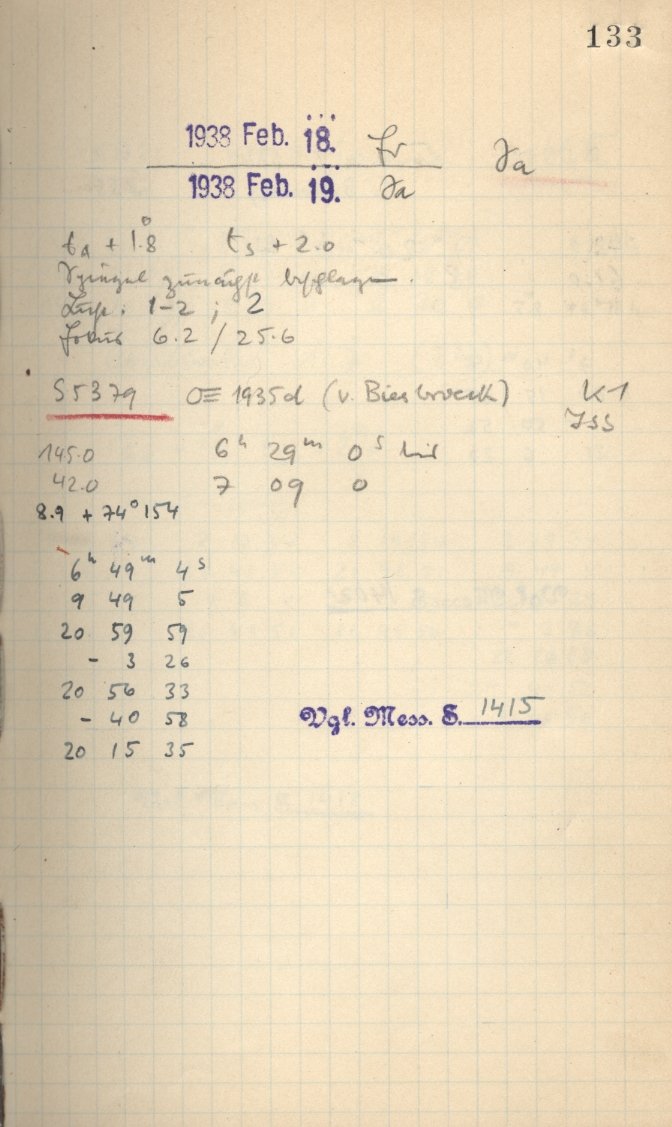 133
1938 Feb. 18. Fr
Ja
1938 Feb. 19. Ja
ta + 1°.8 ts + 2.0
Spiegel zunächst beschlagen.
Luft: 1-2 ; 2
Fokus 6.2 / 25.6
S5379 1935d (v. Biesbroeck) K1
145.0 6h 29m 0s
42.0 7 09 0
8.9 + 74° 154
6h 49m 4s
9 49 5
20 59 59
- 3 26
20 56 33
- 40 58
20 15 35
Vgl. Mess. S. 1415